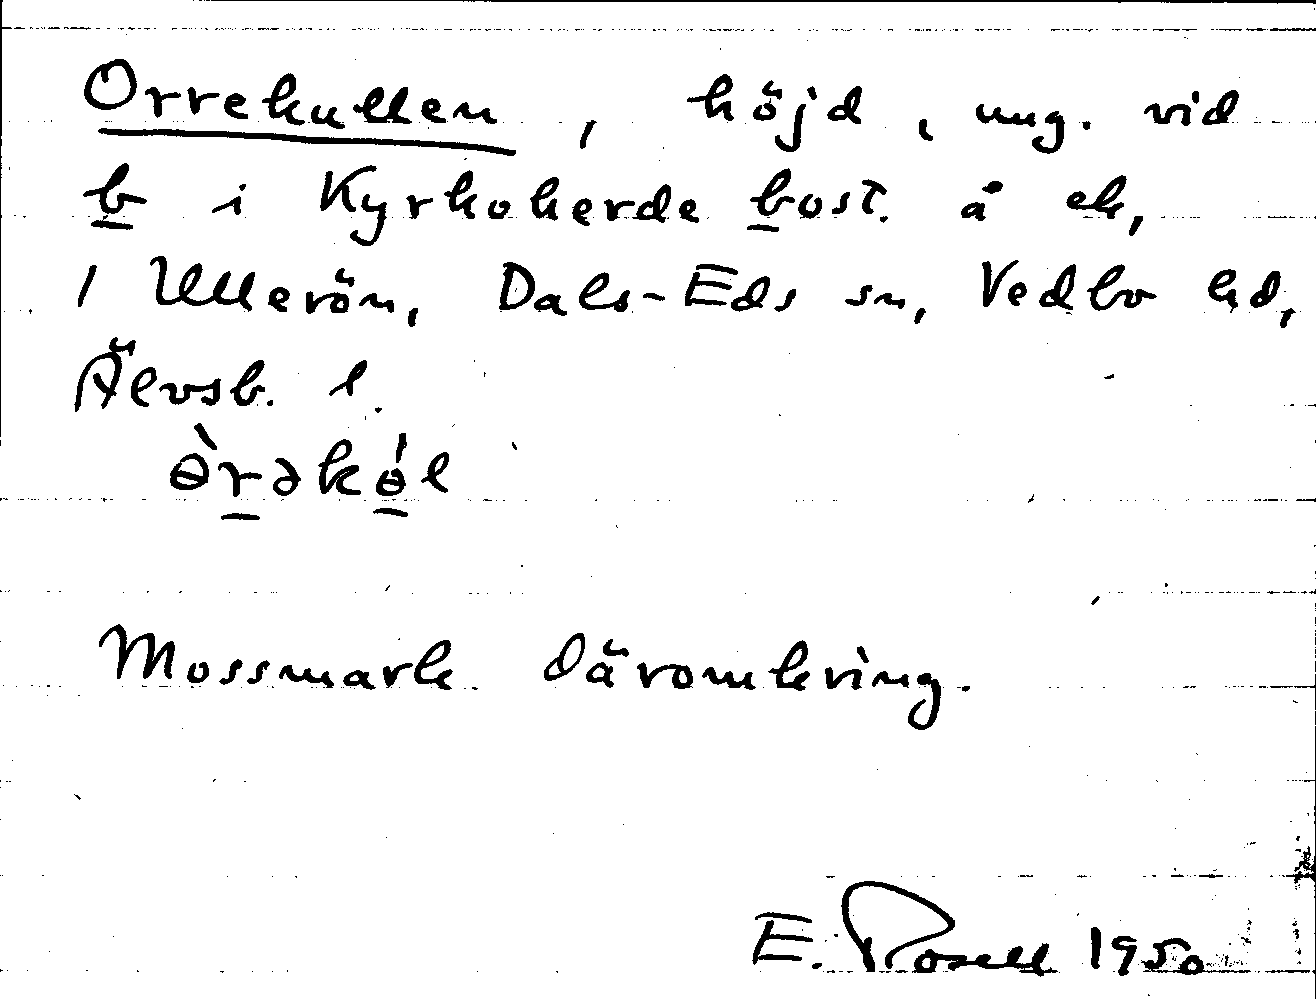 Orrekullen, höjd, ung. vid
b i Kyrkoherdebost. å ek,
i Ulleröm, Dals-Eds sn, Vedbo hd,
Älvsb. l.
ɵ̀rəkɵ́l
Mossmark däromkring.
E. Rosell 1950